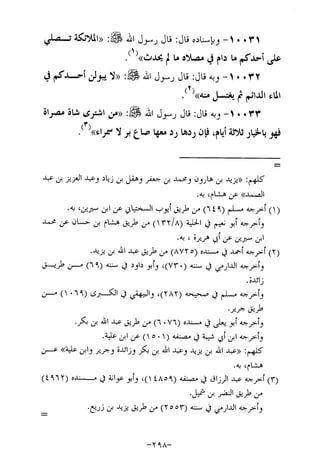 ١٠٠٣١- وبإسناده قال: قال رسول الله ﷺ: «الملائكة تصلي
على أحدكم ما دام في مصلاه ما لم يحدث»(١).
١٠٠٣٢- وبه قال: قال رسول الله ﷺ: «لا يبولن أحدكم في
الماء الدائم ثم يغتسل منه»(٢).
١٠٠٣٣- وبه قال: قال رسول الله ﷺ: «من اشترى شاة مصراة
فهو بالخيار ثلاثة أيام، فإن ردها رد معها صاع بر لا سمراء»(٣).
=
كلهم: «يزيد بن هارون ومحمد بن جعفر وهقل بن زياد وعبد العزيز بن عبد
الصمد» عن هشام، به.
(١) أخرجه مسلم (٦٤٩) من طريق أيوب السختياني عن ابن سيرين، به.
وأخرجه أبو نعيم في الحلية (١٣٢/٨) من طريق هشام بن حسان عن محمد
ابن سيرين عن أبي هريرة ، به.
(٢) أخرجه أحمد في مسنده (٨٧٢٥) من طريق عبد الله بن يزيد.
وأخرجه الدارمي في سننه (٧٣٠)، وأبو داود في سننه (٦٩) من طريق
زائدة.
وأخرجه مسلم في صحيحه (٢٨٢)، والبيهقي في الكبرى (١٠٦٩) من
طريق جرير.
وأخرجه أبو يعلى في مسنده (٦٠٧٦) من طريق عبد الله بن بكر.
وأخرجه ابن أبي شيبة في مصنفه (١٥٠١) عن ابن علية.
كلهم: «عبد الله بن يزيد وعبد الله بن بكر وزائدة وجرير وابن علية» عن
هشام، به.
(٣) أخرجه عبد الرزاق في مصنفه (١٤٨٥٩)، وأبو عوانة في مسنده (٤٩٦٢)
من طريق النضر بن شميل.
وأخرجه الدارمي في سننه (٢٥٥٣) من طريق يزيد بن زريع.
=
-٢٩٨-